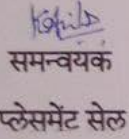 समन्वयक
प्लेसमेंट सेल